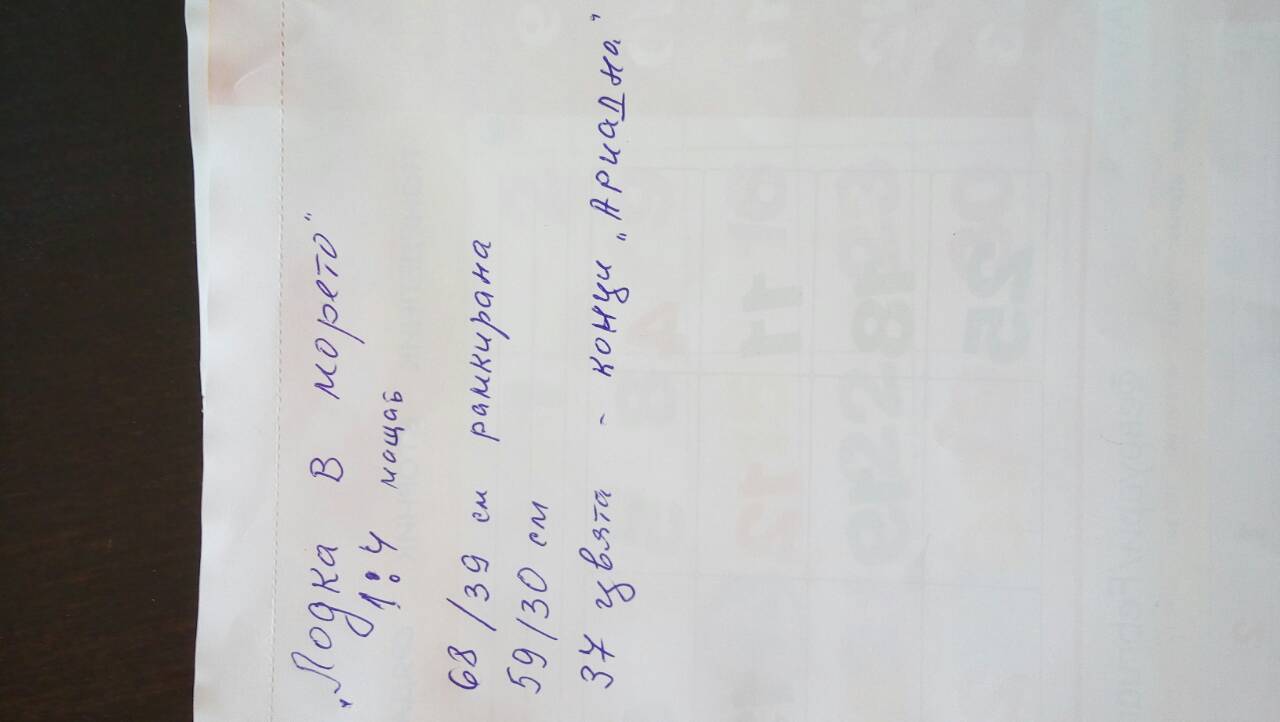 „Лодка в морето"
1:4 мащаб
68/39 см рамкирана
59/30 см
37 цвята - конци „Ариадна"